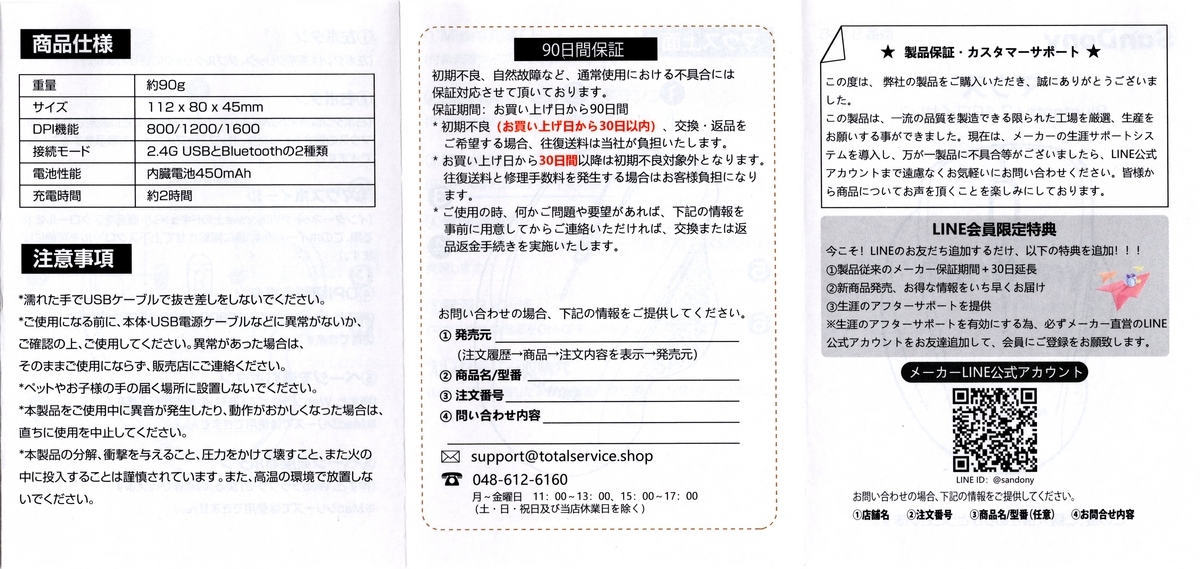 商品仕様
重量 約90g
サイズ 112 x 80 x 45mm
DPI機能 800/1200/1600
接続モード 2.4G USBとBluetoothの2種類
電池性能 内臓電池450mAh
充電時間 約2時間
注意事項
*濡れた手でUSBケーブルで抜き差しをしないでください。
*ご使用になる前に、本体・USB電源ケーブルなどに異常がないか、
ご確認の上、ご使用してください。異常があった場合は、
そのままご使用にならず、販売店にご連絡ください。
*ペットやお子様の手の届く場所に設置しないでください。
*本製品をご使用中に異音が発生したり、動作がおかしくなった場合は、
直ちに使用を中止してください。
*本製品の分解、衝撃を与えること、圧力をかけて壊すこと、また火の
中に投入することは謹慎されています。また、高温の環境で放置しな
いでください。
90日間保証
初期不良、自然故障など、通常使用における不具合には
保証対応させて頂いております。
保証期間：お買い上げ日から90日間
* 初期不良（お買い上げ日から30日以内）、交換・返品を
ご希望する場合、往復送料は当社が負担いたします。
* お買い上げ日から30日間以降は初期不良対象外となります。
往復送料と修理手数料を発生する場合はお客様負担になり
ます。
* ご使用の時、何かご問題や要望があれば、下記の情報を
事前に用意してからご連絡いただければ、交換または返
品返金手続きを実施いたします。
お問い合わせの場合、下記の情報をご提供してください。
① 発売元
(注文履歴→商品→注文内容を表示→発売元)
② 商品名/型番
③ 注文番号
④ 問い合わせ内容
support@totalservice.shop
048-612-6160
月～金曜日 11：00～13：00、15：00～17：00
(土・日・祝日及び当店休業日を除く)
★ 製品保証・カスタマーサポート ★
この度は、弊社の製品をご購入いただき、誠にありがとうございま
した。
この製品は、一流の品質を製造できる限られた工場を厳選、生産を
お願いする事ができました。現在は、メーカーの生涯サポートシス
テムを導入し、万が一製品に不具合等がございましたら、LINE公式
アカウントまで遠慮なくお気軽にお問い合わせください。皆様か
ら商品についてお声を頂くことを楽しみにしております。
LINE会員限定特典
今こそ！LINEのお友だち追加するだけ、以下の特典を追加！！！
①製品従来のメーカー保証期間＋30日延長
②新商品発売、お得な情報をいち早くお届け
③生涯のアフターサポートを提供
※生涯のアフターサポートを有効にする為、必ずメーカー直営のLINE
公式アカウントをお友達追加して、会員にご登録をお願致します。
メーカーLINE公式アカウント
LINE ID：@sandony
お問い合わせの場合、下記の情報をご提供してください。
①店舗名 ②注文番号 ③商品名/型番(任意) ④お問合せ内容